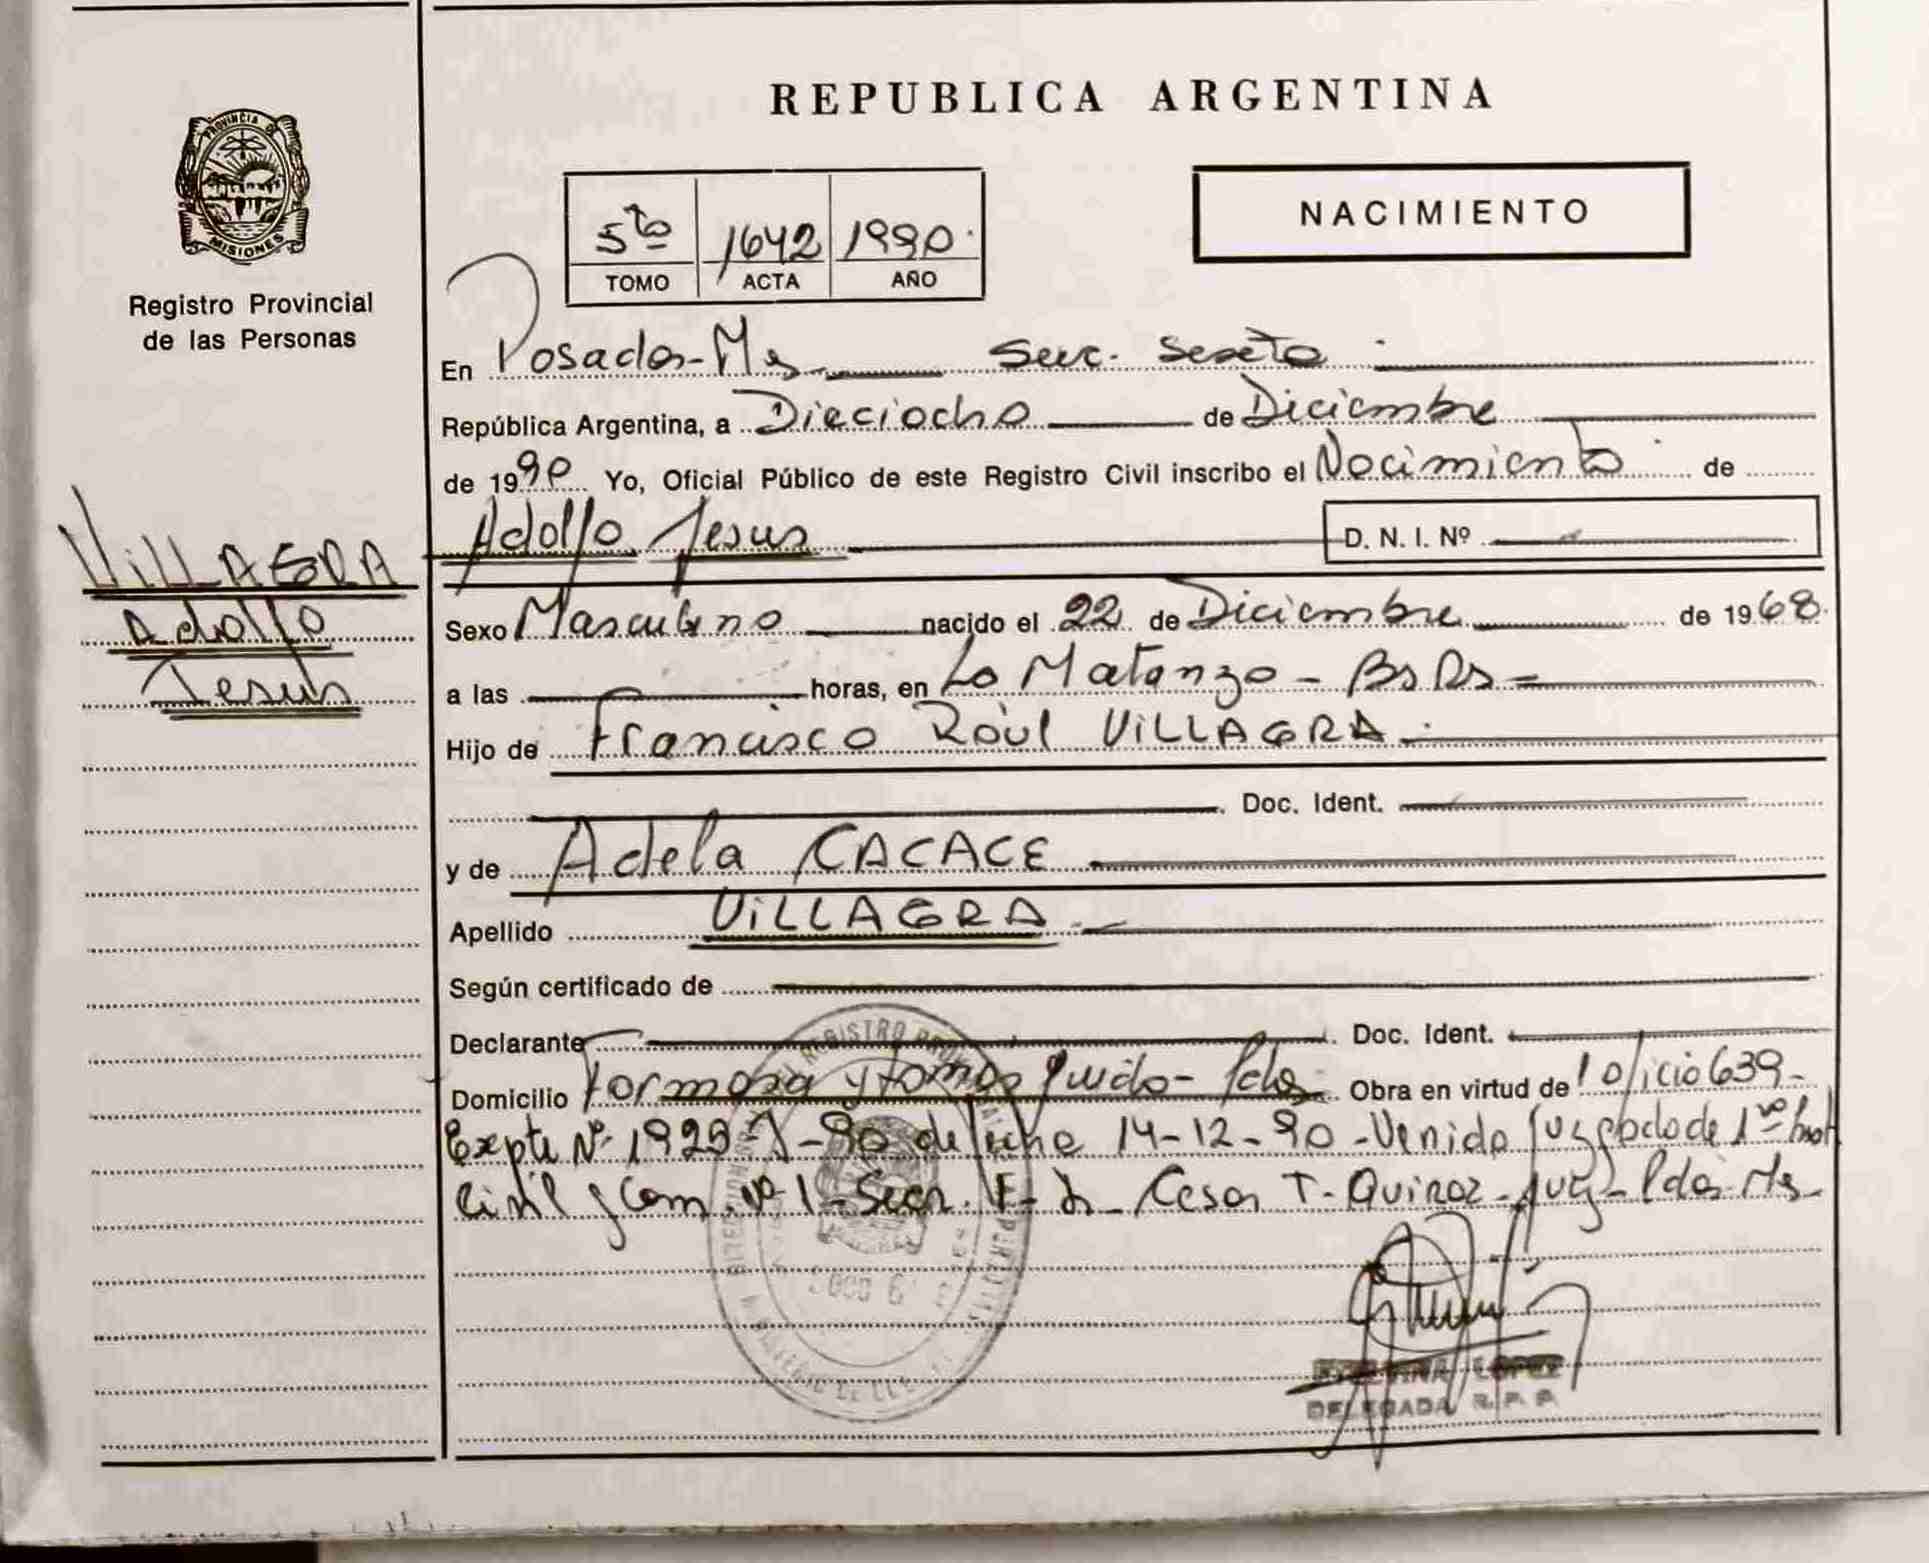 REPUBLICA ARGENTINA
PROVINCIA DE
MISIONES
Registro Provincial
de las Personas
NACIMIENTO
5to 1642 1990.
TOMO ACTA AÑO
En Posadas-Ms Secc. Sexta
República Argentina, a Dieciocho de Diciembre
de 1990 Yo, Oficial Público de este Registro Civil inscribo el Nacimiento de
Adolfo Jesus D. N. I. Nº
VILLAGRA
Adolfo
Jesús
Sexo Masculino nacido el 22 de Diciembre de 1968.
a las horas, en La Matanza - Bs As -
Hijo de Francisco Raúl VILLAGRA
Doc. Ident.
y de Adela CACACE
Apellido VILLAGRA
Según certificado de
Declarante Doc. Ident.
Domicilio Formosa y Tomas Guido - Pdas Obra en virtud de Oficio 639-
Expte Nº 1929- -90 de fecha 14-12-90 - Venido Juzgado de 1ra Inst
Civil y Com. Nº 1 - Secr. Cesar T. Quiroz - Juez - Pdas Ms -
REGISTRO
LOPEZ
DELEGADA R. P. P.